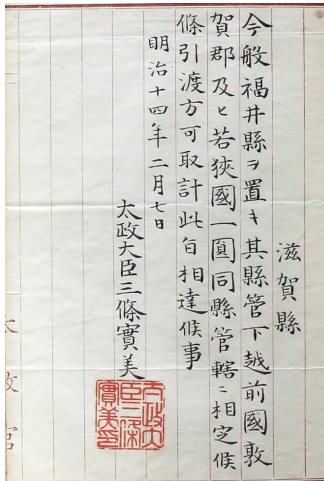 滋賀縣
今般福井縣ヲ置キ其縣管下越前國敦
賀郡及ヒ若狹國一圓同縣管轄ニ相定候
條引渡方可取計此旨相達候事
明治十四年二月七日
太政大臣三條實美
太政大
臣三條
實美印
太政官